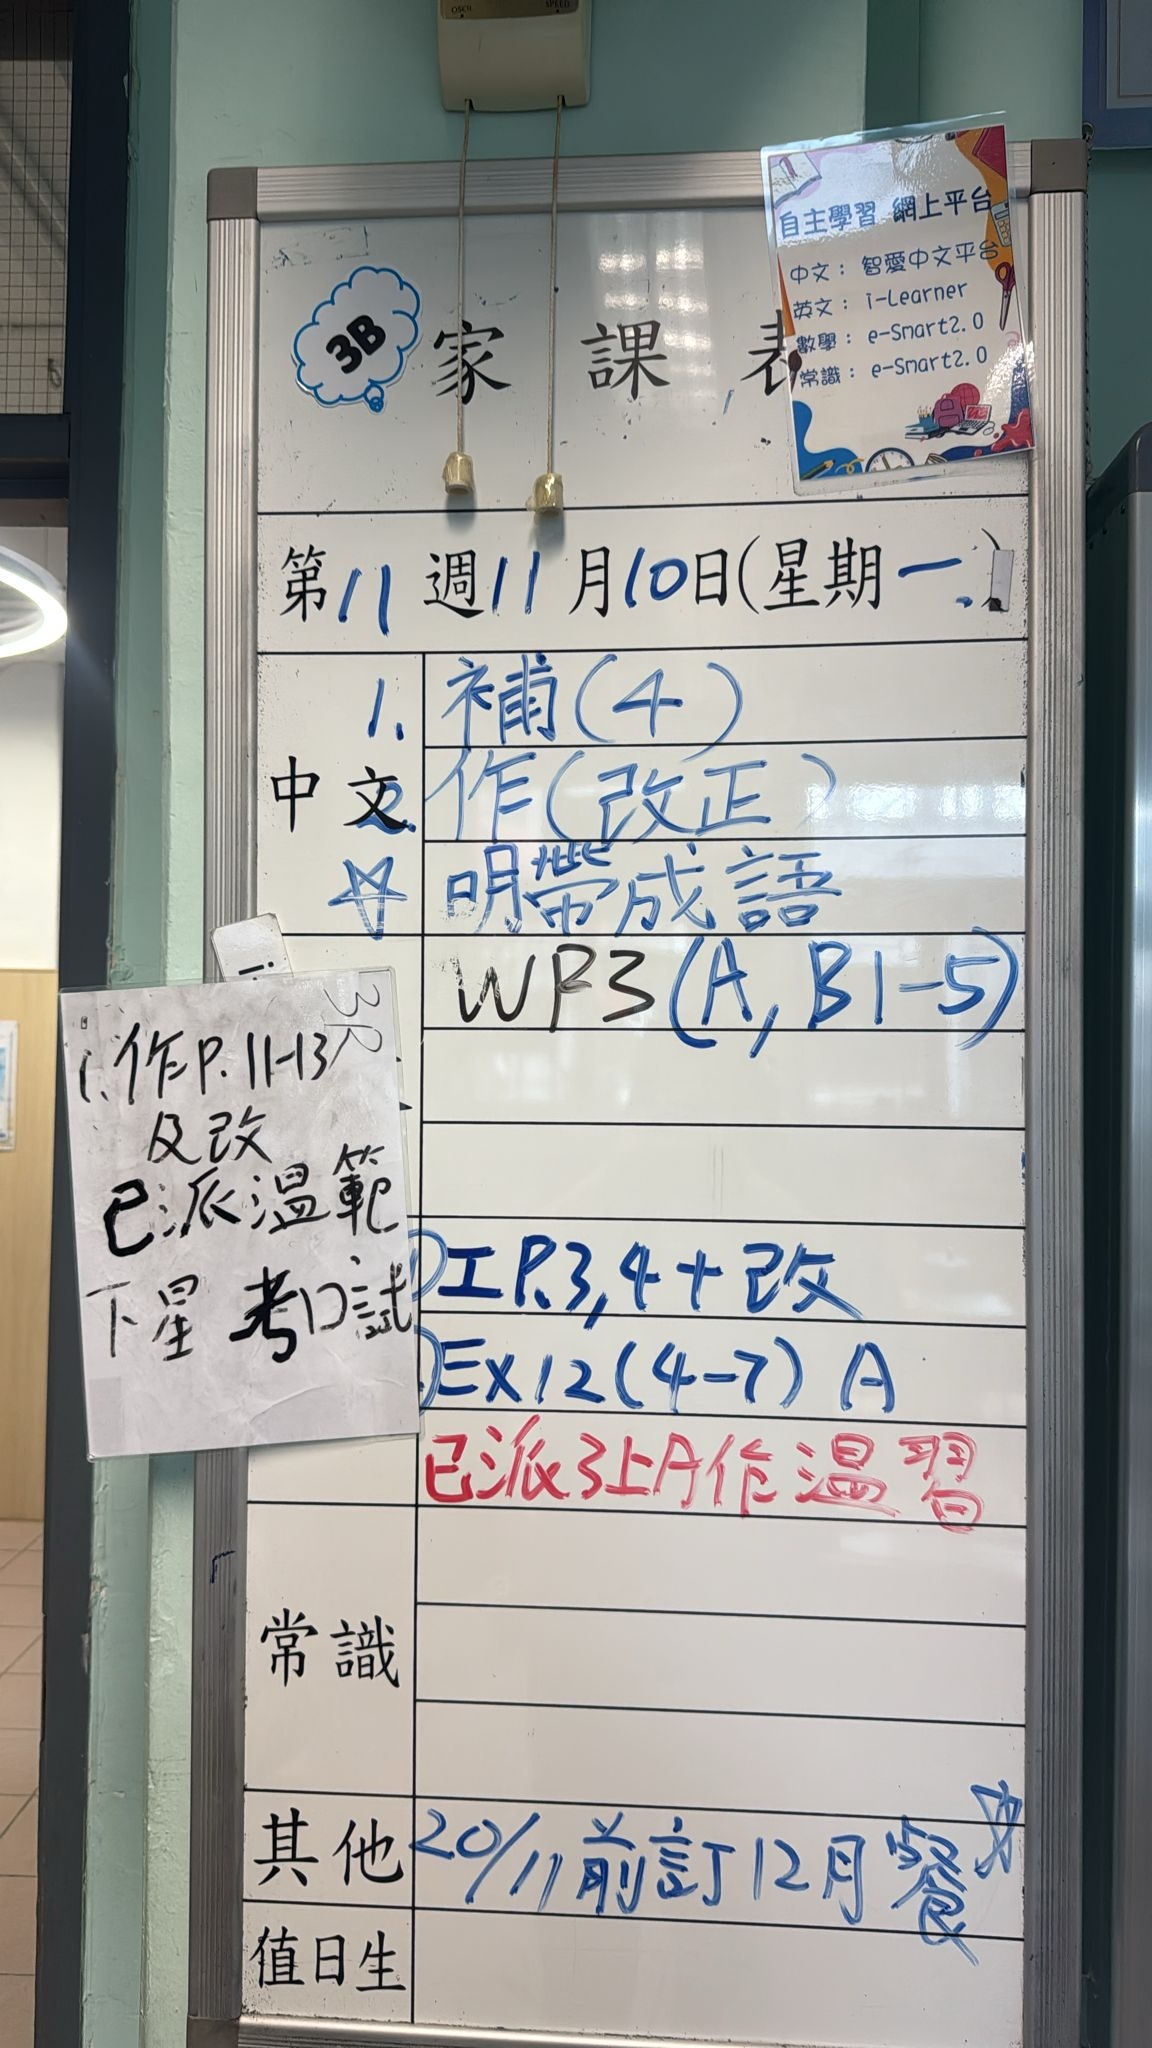 OSCIL SPEED
3B
家課表
自主學習 網上平台
中文：智愛中文平台
英文：i-Learner
數學：e-Smart2.0
常識：e-Smart2.0
第11週11月10日(星期一)
中文
1. 補(4)
2. 作(改正)
☆ 明帶成語
WP3(A, B1-5)
1. 作P. 11-13
及改
已派溫範
下星考口試
工P.3,4+改
Ex12(4-7) A
已派3上A作溫習
常識
其他
20/11前訂12月餐
值日生